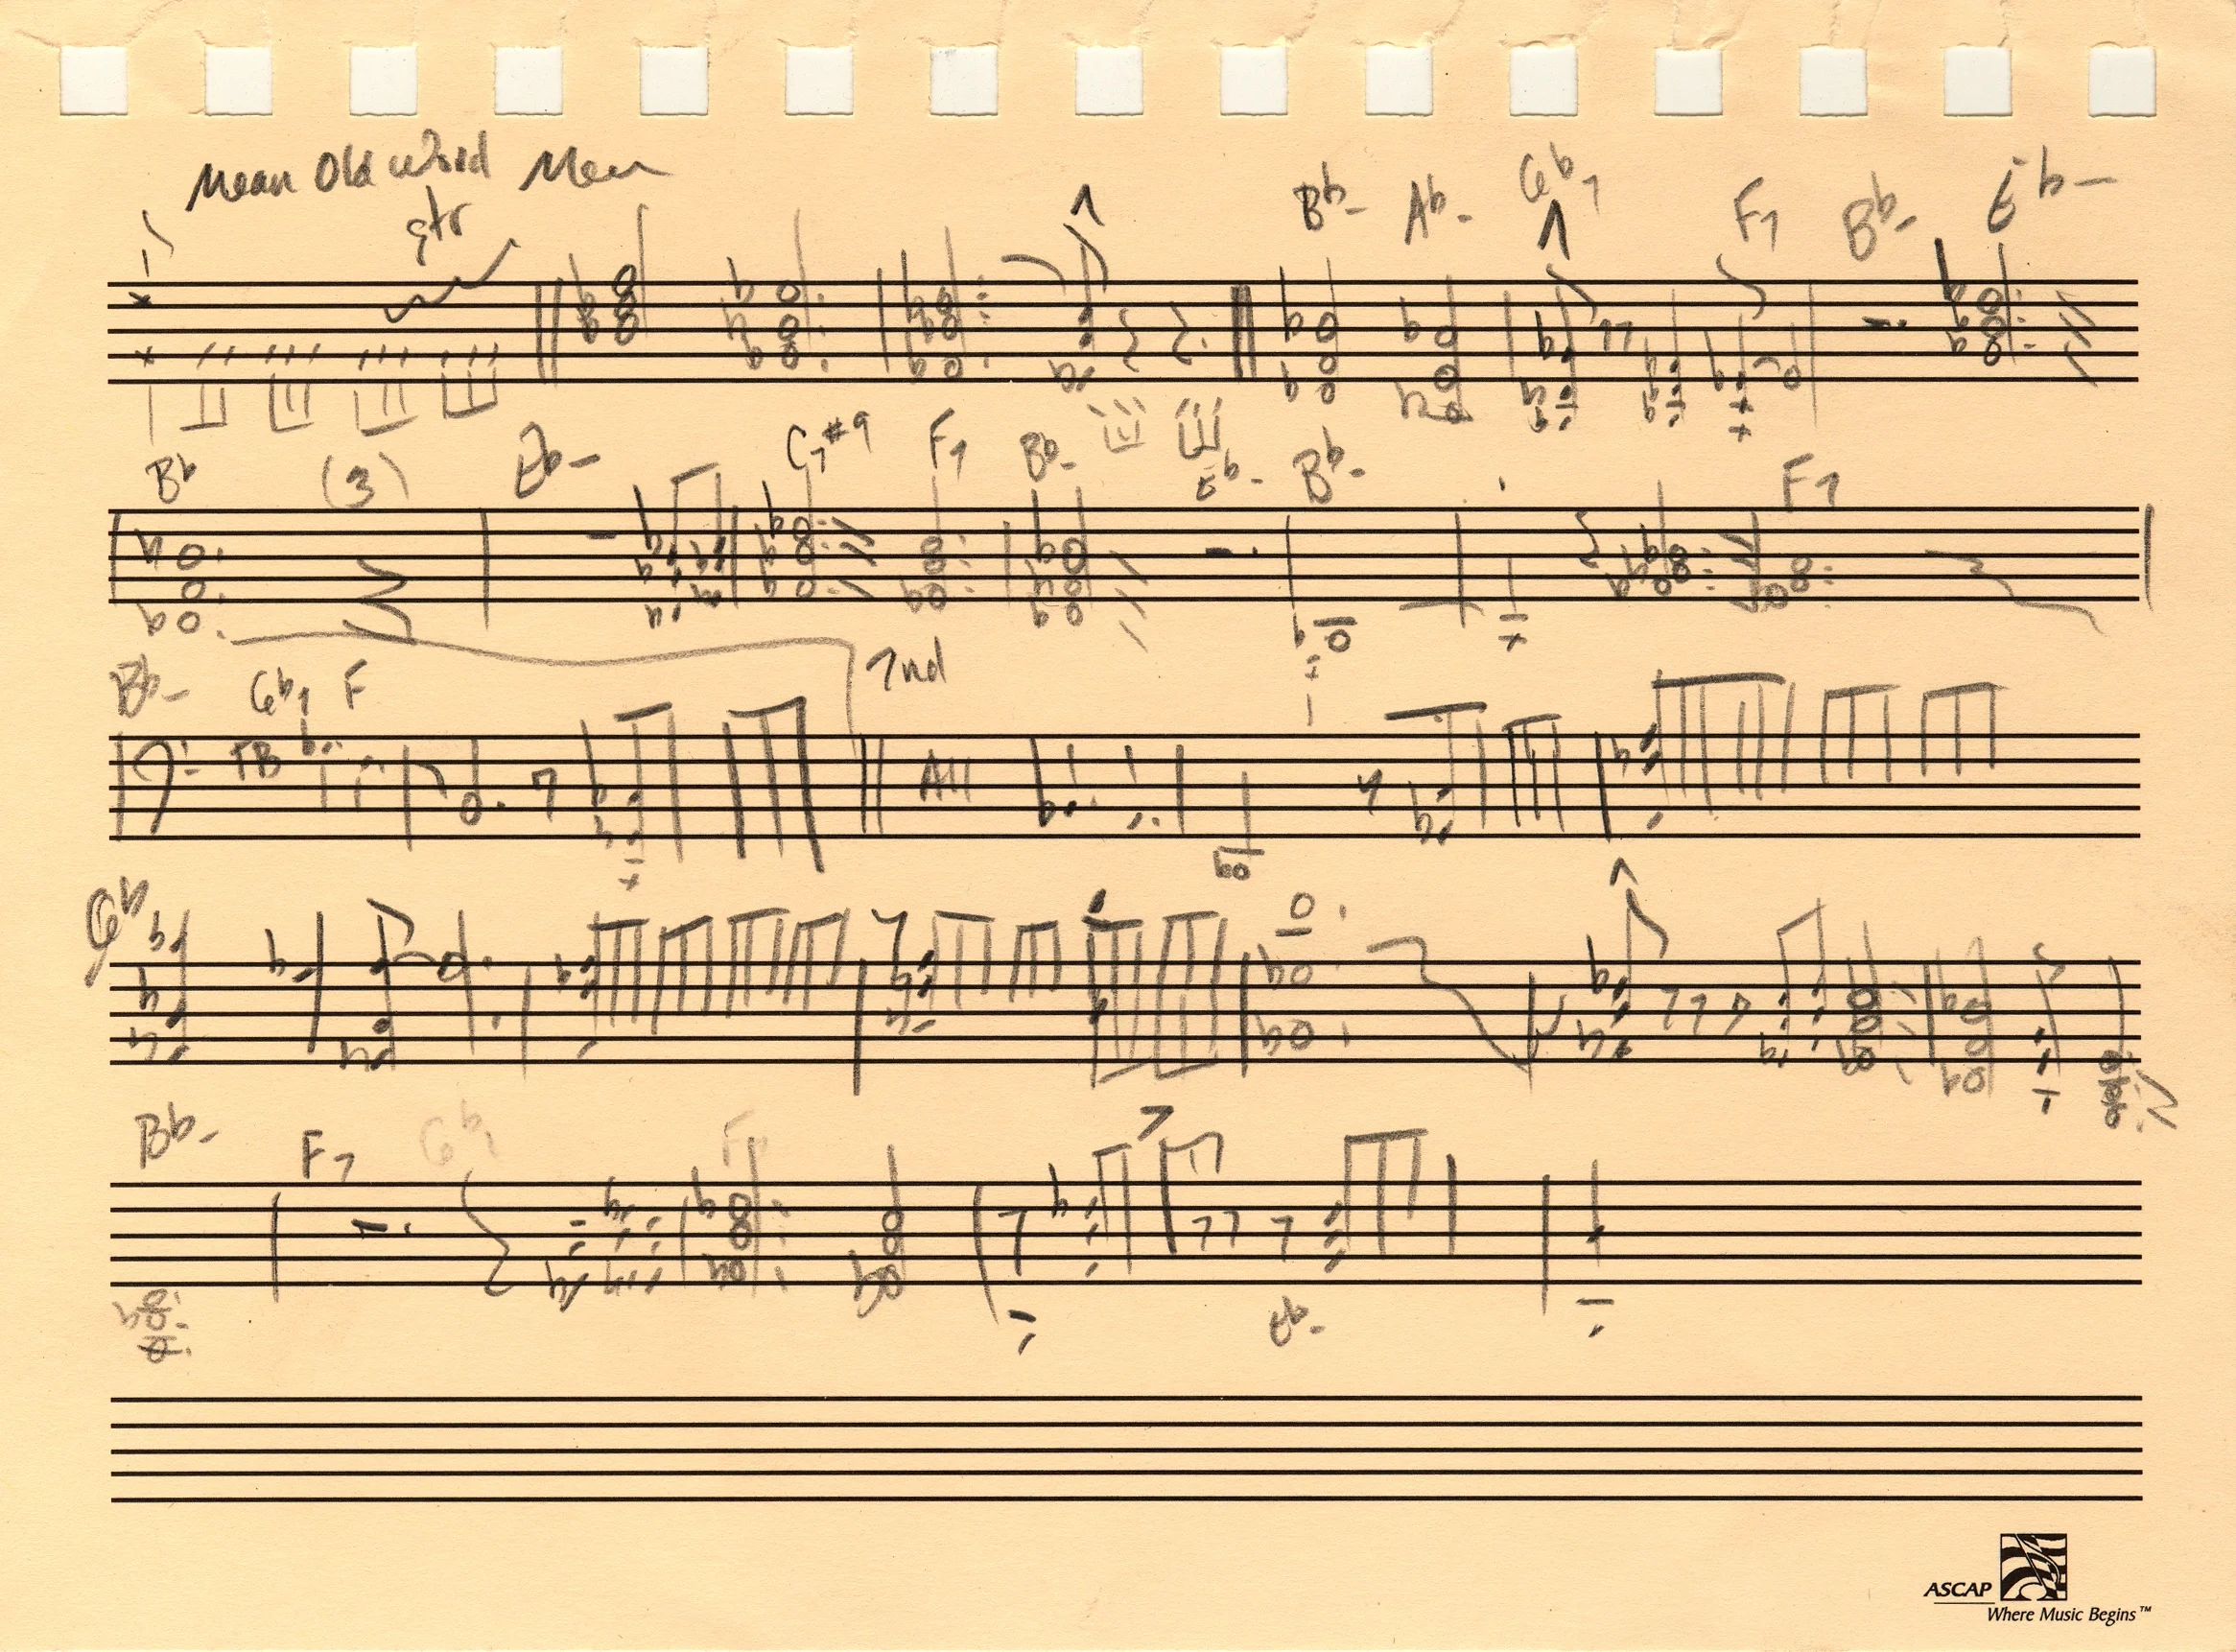 Mean Old World Man
gtr
Bb- Ab- Gb7 F7 Bb- Eb-
Bb (3) Eb- C7#9 F7 Bb- Eb- Bb- F7
Bb- Gb7 F 2nd
TB All
Gb
Bb- F7 Gb7 F7
Eb-
ASCAP
Where Music Begins™